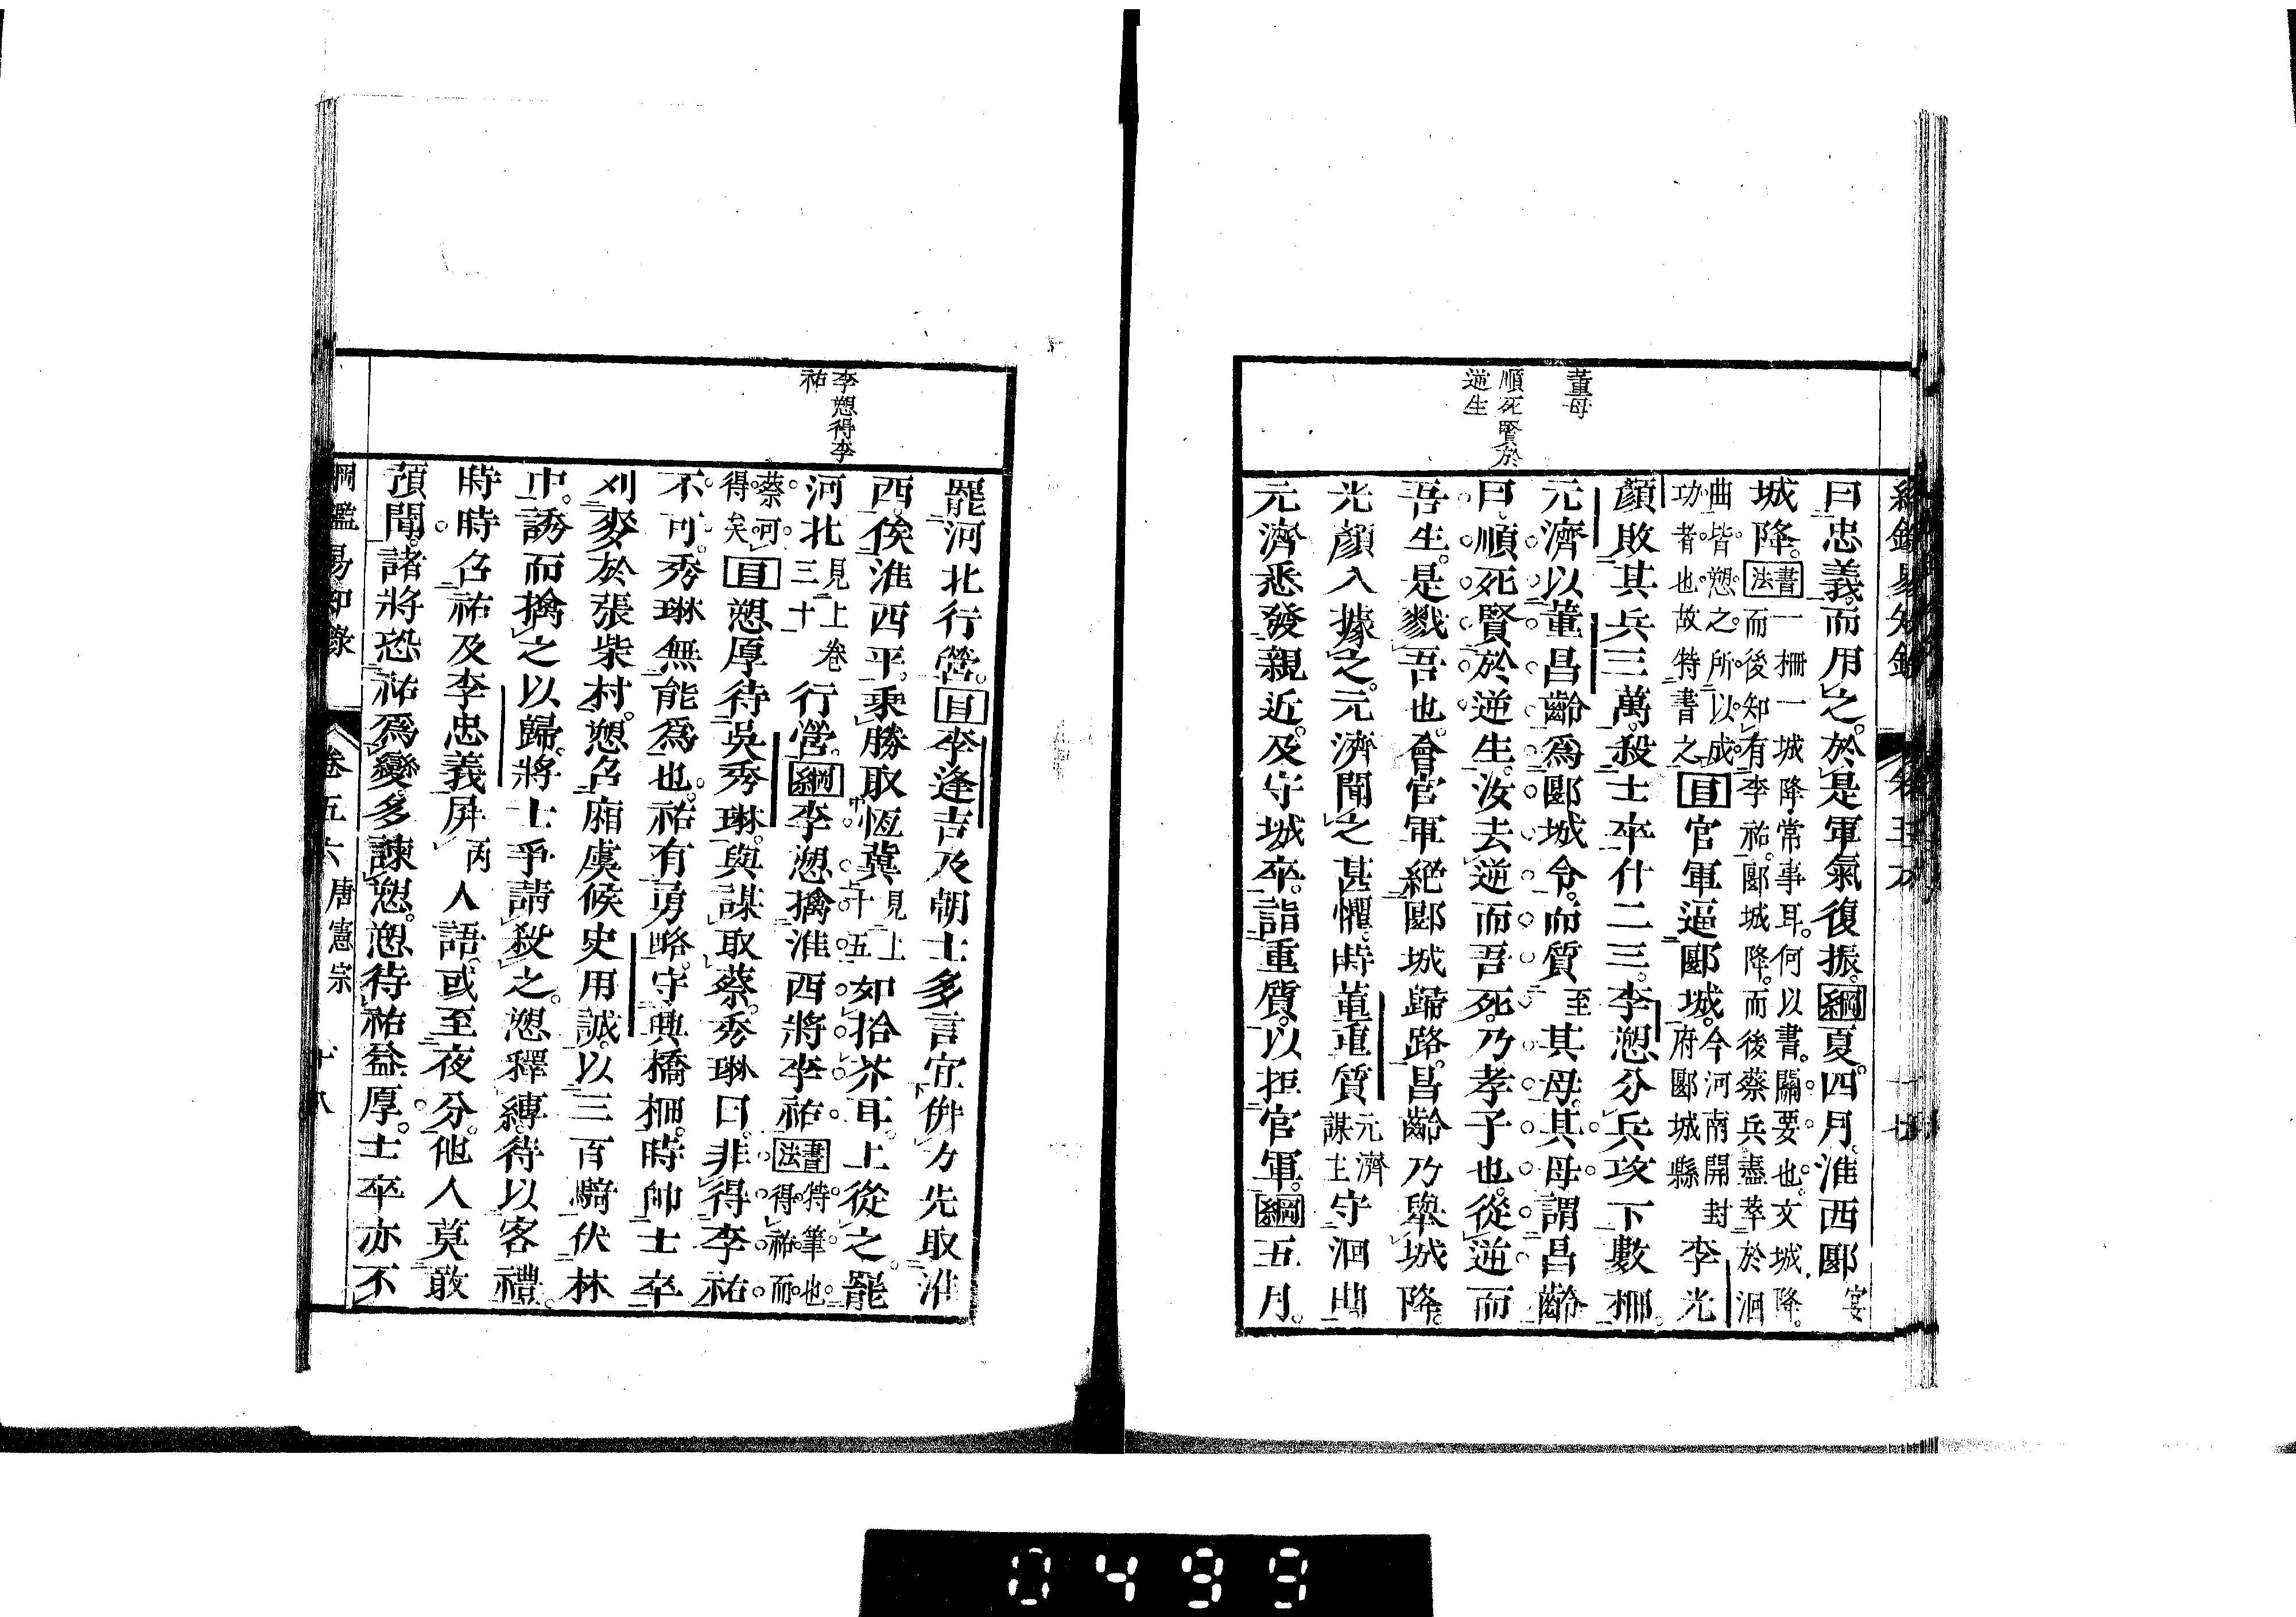 董母
順死賢於
逆生
曰忠義而用之於是軍氣復振。綱夏四月。淮西郾宴
城降。書法一柵一城降常事耳何以書關要也文城降
而後知有李祐郾城降而後蔡兵盡萃於洄
曲皆愬之所以成
功者也故特書之目官軍逼郾城今河南開封
府郾城縣李光
顏敗其兵三萬殺士卒什二三李愬分兵攻下數柵。
元濟以董昌齡爲郾城令而質至其母其母謂昌齡
曰順死賢於逆生汝去逆而吾死乃孝子也從逆而
吾生是戮吾也會官軍絕郾城歸路昌齡乃舉城降。
光顏入據之元濟聞之甚懼時董重質元濟
謀主守洄曲
元濟悉發親近及守城卒詣重質以拒官軍綱五月。
罷河北行營。目李逢吉及朝士多言宜併力先取淮
西俟淮西平乘勝取恆冀見上
十五如拾芥耳上從之罷
河北見上卷
三十一行營。綱李愬擒淮西將李祐書法特筆也
得祐而
蔡可
得矣目愬厚待吳秀琳與謀取蔡秀琳曰非得李祐
不可秀琳無能爲也祐有勇略守興橋柵時帥士卒
刈麥於張柴村愬召廂虞候史用誠以三百騎伏林
中誘而擒之以歸將士爭請殺之愬釋縛待以客禮
時時召祐及李忠義屏丙人語或至夜分他人莫敢
預聞諸將恐祐爲變多諫愬愬待祐益厚士卒亦不
李愬得李
祐
綱鑑易知錄 卷五六 唐憲宗 十八
0499